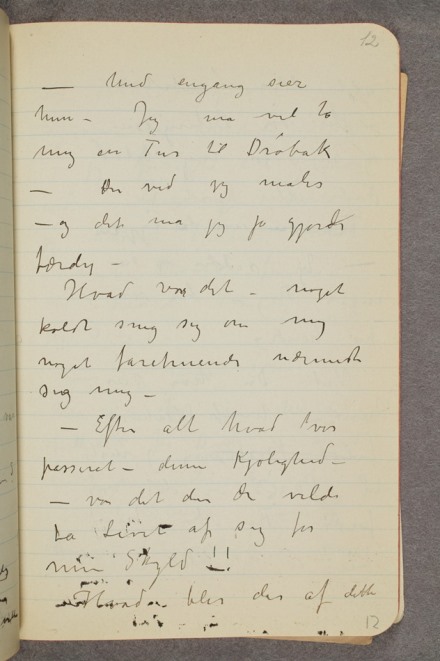 12
— Med engang sier
hun – Jeg må vel ta
mig en Tur til Dröbak
— De ved jeg males
– og det må jeg jo gjorde
færdig –
Hvad var det – noget
koldt sneg sig om mig
noget faretruende nærmede
sig mig –
– Efter alt hvad her
passeret – denne Kjølighed –
– var det den De vilde
ta Livet af sig for
min Skyld !!
– Hvad blir der af dette
12